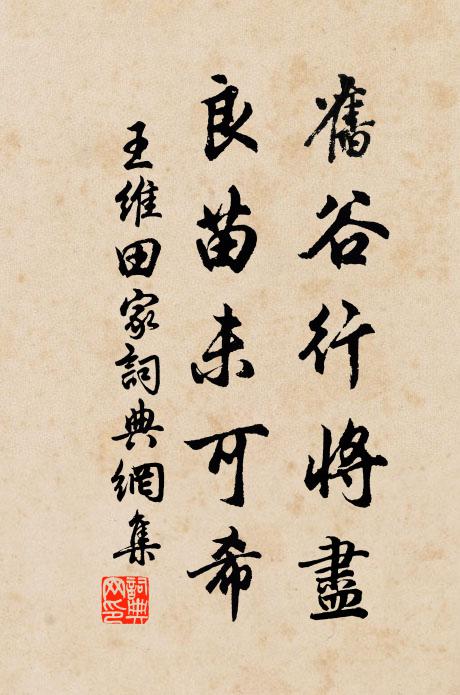 舊谷行將盡
良苗未可希
王維田家詞典網集
詞典网印